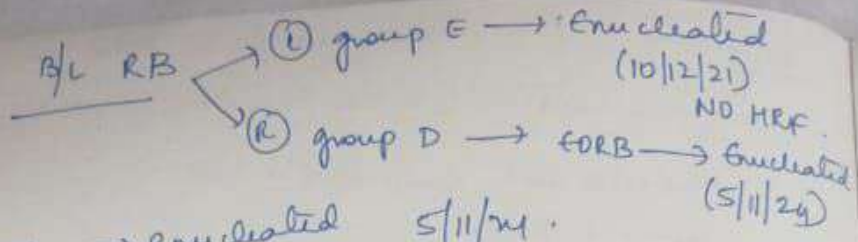 B/L RB
Ⓛ group E → Enucleated
(10/12/21)
NO HRF.
Ⓡ group D → EORB → Enucleated
(5/11/24)
enucleated 5/11/24.